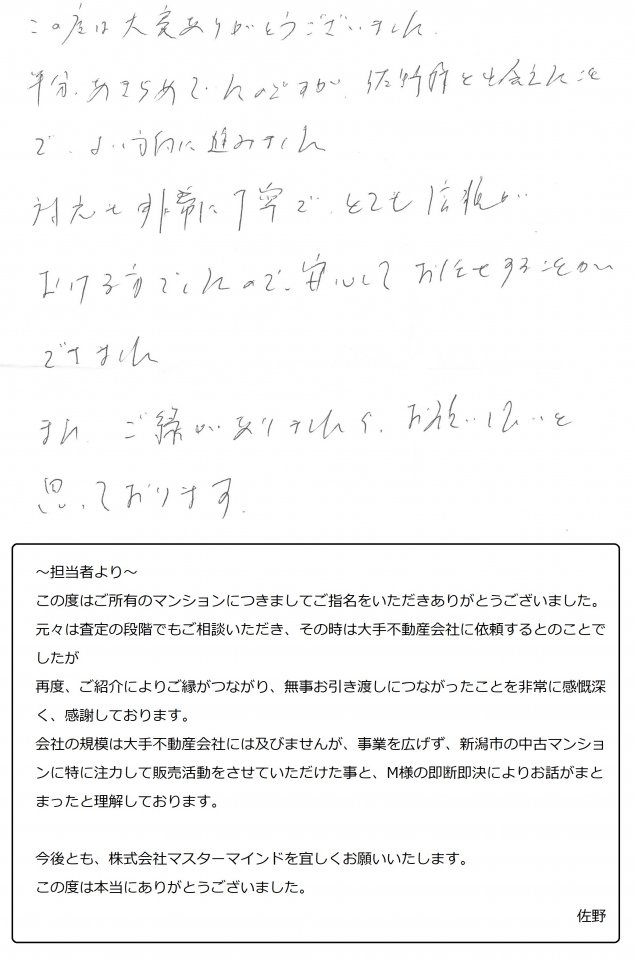 この度は大変ありがとうございました。
半分、あきらめていたのですが、佐野様と出会えたこと
で、よい方向に進みました
対応も非常に丁寧で、とても信頼が
おける方でしたので、安心してお任せすることが
できました
また、ご縁がありましたら、お願いしたいと
思っております。
～担当者より～
この度はご所有のマンションにつきましてご指名をいただきありがとうございました。
元々は査定の段階でもご相談いただき、その時は大手不動産会社に依頼するとのことで
したが
再度、ご紹介によりご縁がつながり、無事お引き渡しにつながったことを非常に感慨深
く、感謝しております。
会社の規模は大手不動産会社には及びませんが、事業を広げず、新潟市の中古マンショ
ンに特に注力して販売活動をさせていただけた事と、M様の即断即決によりお話がまと
まったと理解しております。
今後とも、株式会社マスターマインドを宜しくお願いいたします。
この度は本当にありがとうございました。
佐野